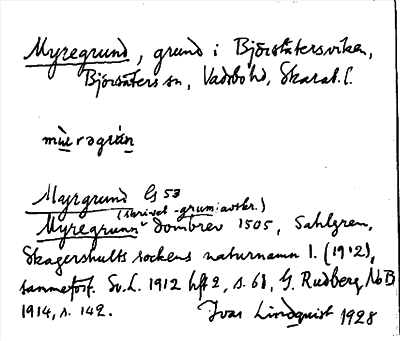 Myregrund, grund i Björsätersviken,
Björsäters sn, Vadsbo hd, Skarab. l.
mùrəgrún
Myrgrund Gs 53
(skrivet -grum: avskr.)
Myregrunn" dombrev 1505, Sahlgren,
Skagershults sockens naturnamn 1. (1912),
samme förf. Sv. L. 1912 hft 2, s. 61, G. Rudberg NoB
1914, s. 142. Ivar Lindquist 1928